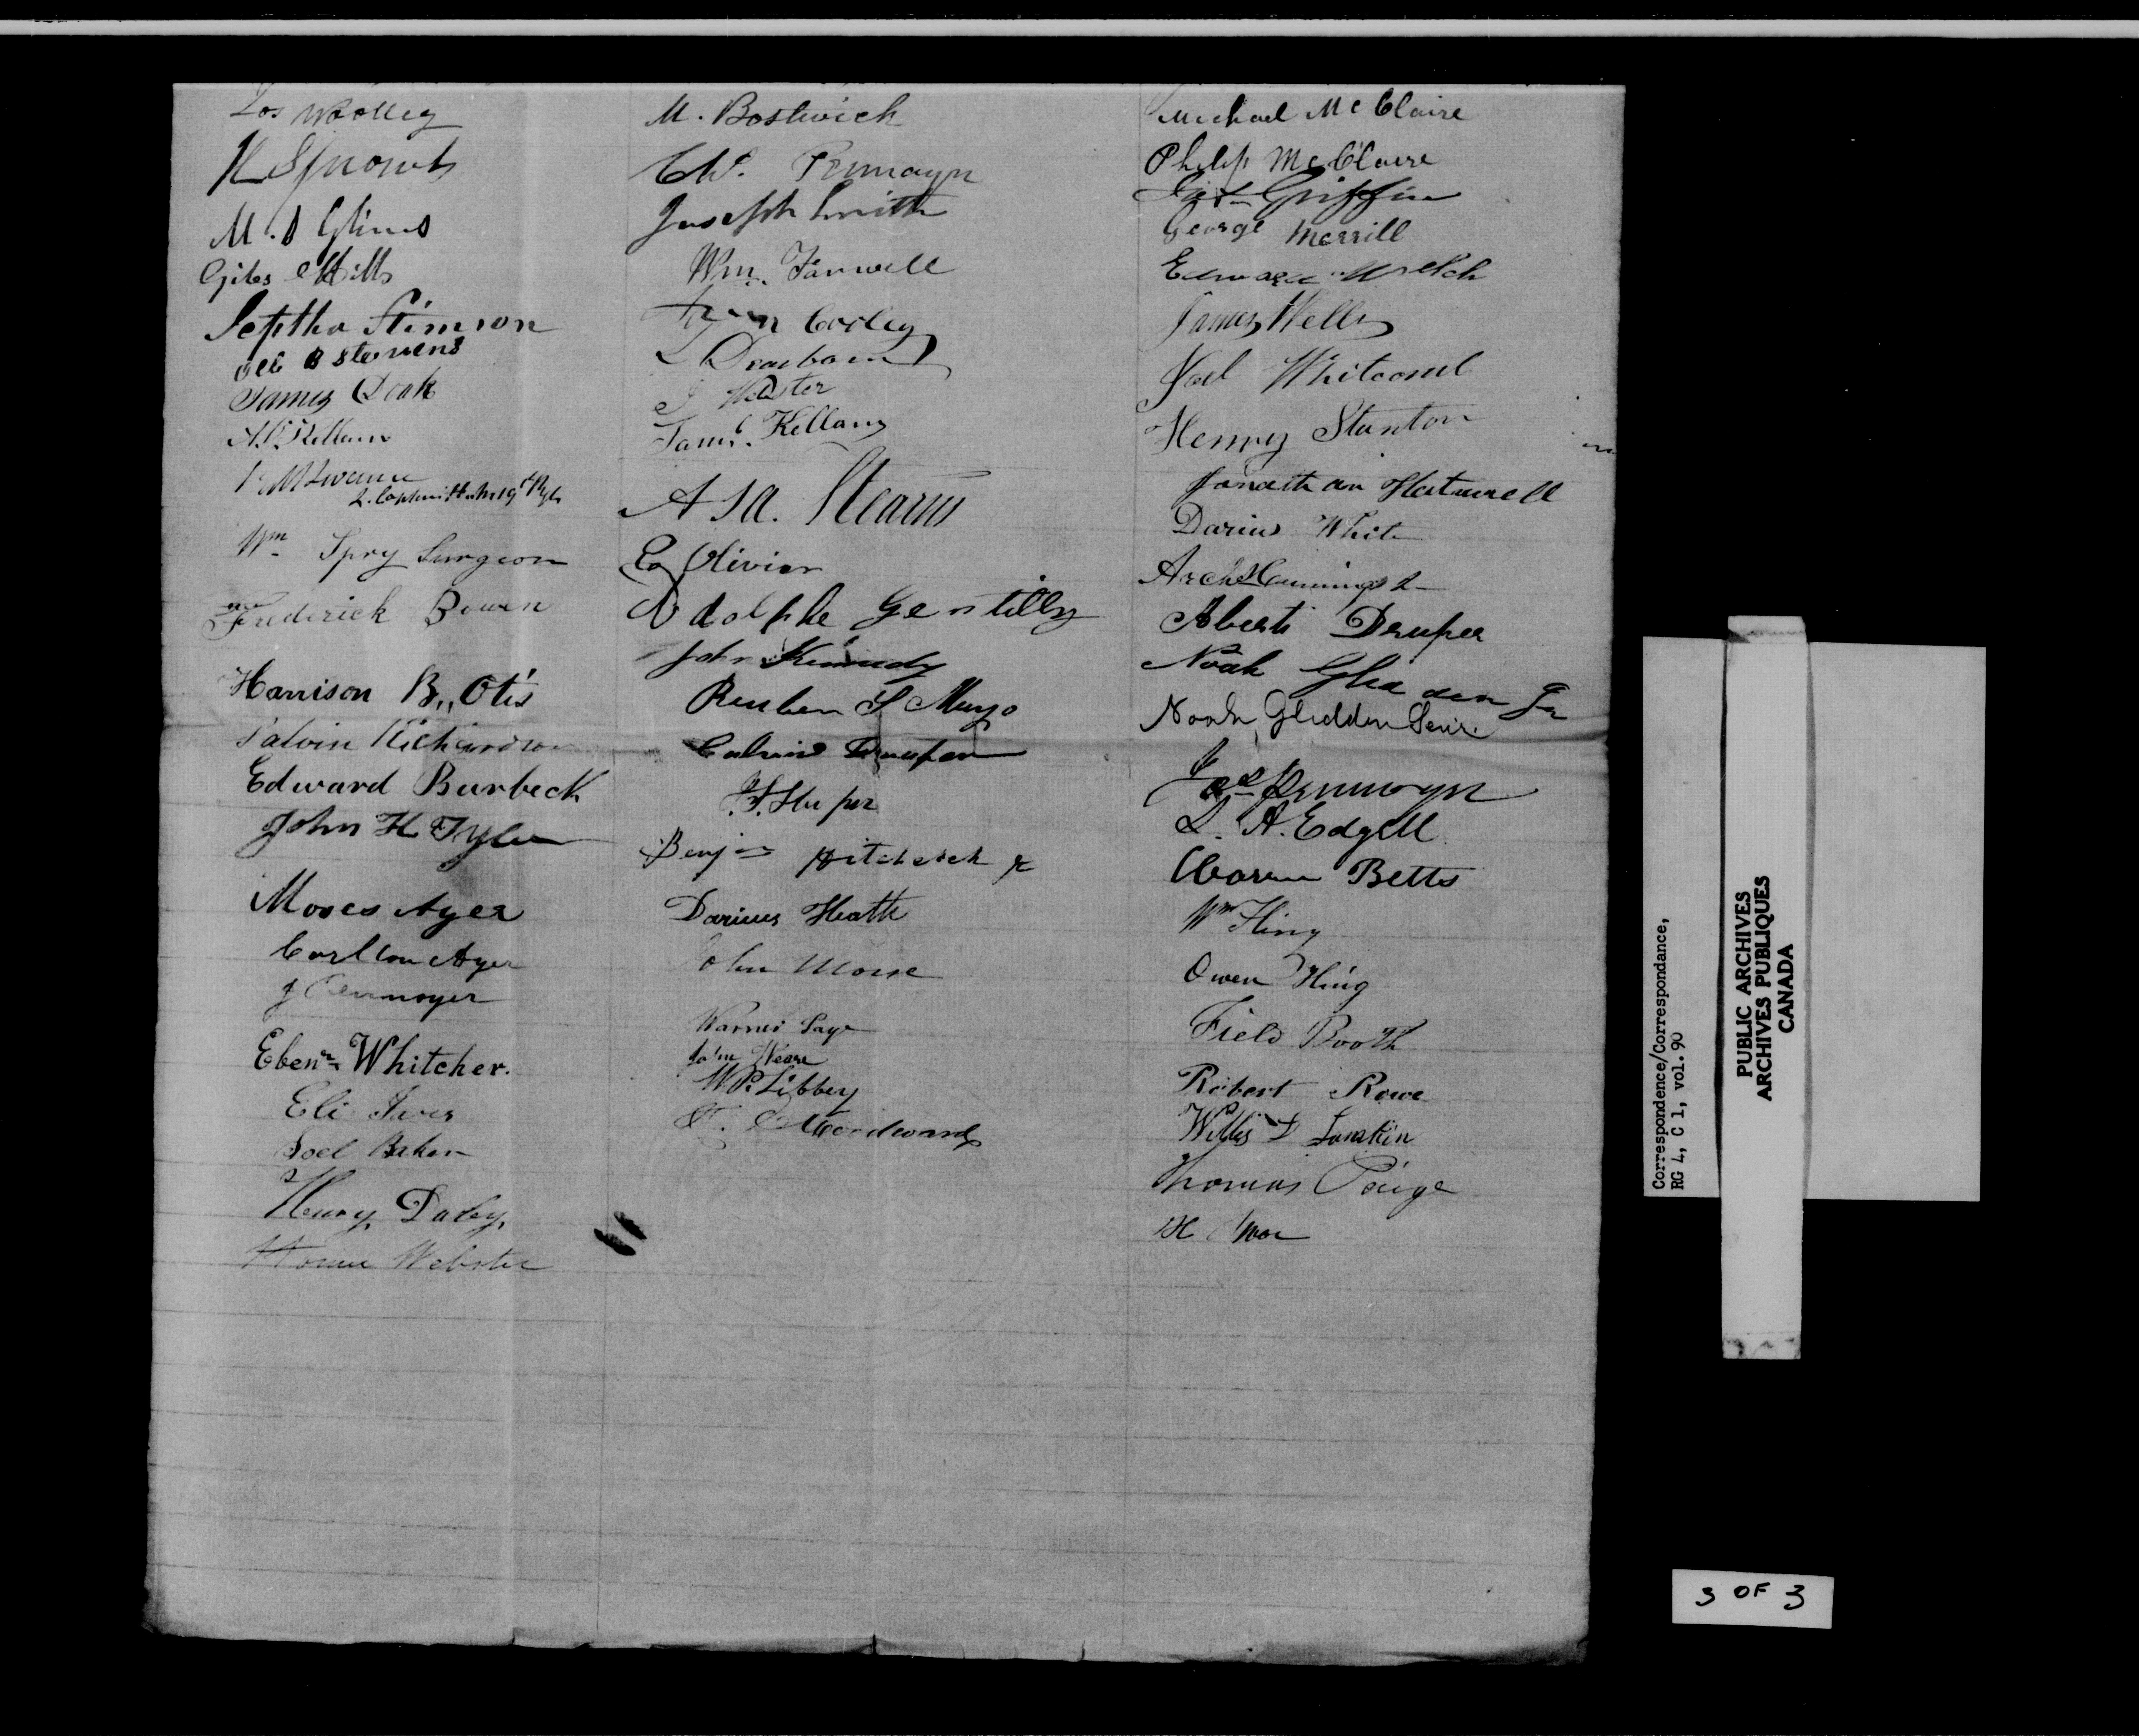 Jos Woolley
M. S Glines
Giles Hills
Jeptha Stimson
B Stevens
James Doak
A. Kellam
Wm Spry Surgeon
Frederick Bowen
Harrison B,, Otis
Calvin Richardson
Edward Burbeck
John H Tyler
Moses Ayer
Carlton Ayer
J Penmoyer
Ebenr Whitcher.
Eli Ives
Joel Baker
Henry Daley,
Horace Webster
M. Bostwick
Chs. Pennoyer
Joseph Smith
Wm. Farwell
Cooley
Dearborn
Kellam
Asa. Stearns
Olivier
Adolphe Gentilly
John Kennedy
Reuben S Mayo
Calvin Draper
Benjn Hitchcock Jr
Darius Heath
John Morse
Warner Page
W P. Libbey
Woodward
Michael McClaire
Philip McClaire
Jas Griffin
George Merrill
Edward Welch
James Wells
Joel Whitcomb
Henry Stanton
Jonathan Hartwell
Darius White
Archd Cummings
Alberti Draper
Noah Glidden Jr
Noah Glidden Senr.
Jas Pennoyer
L. A. Edgell
Warren Betts
Wm Hing
Owen Hing
Field Booth
Robert Rowe
Willis D Lamkin
Thomas Paige
H
Correspondence/Correspondance,
RG 4, C 1, vol. 90
PUBLIC ARCHIVES
ARCHIVES PUBLIQUES
CANADA
3 OF 3